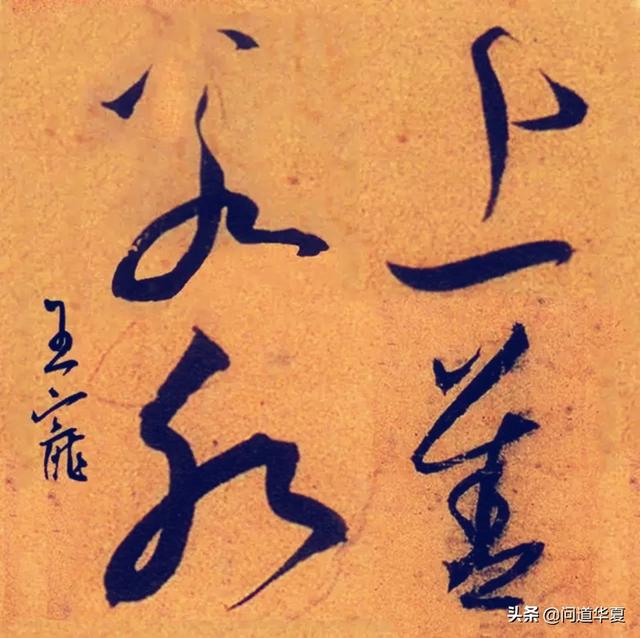 上善
若水
王寵
头条 @问道华夏